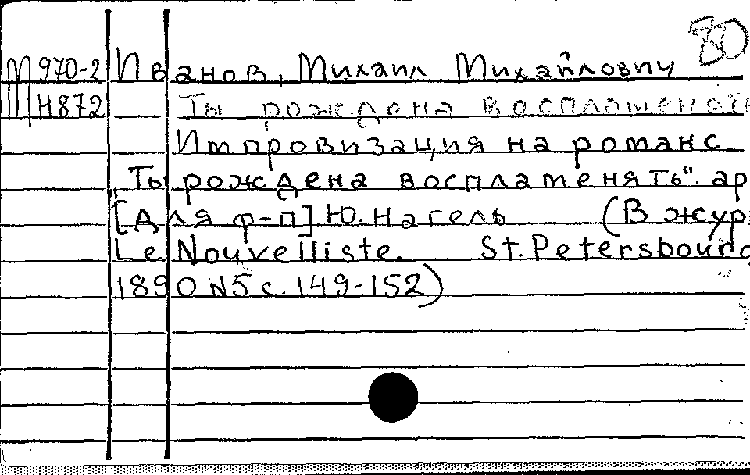 80
М 970-2 Иванов, Михаил Михайлович
III H872 Ты рождена воспламенять
Импровизация на романс
„Ты рождена воспламенять". ар
[для ф-п] Ю. Нагель (В жур
Le Nouvelliste. St. Petersbourg
1890 N5 с. 149-152)